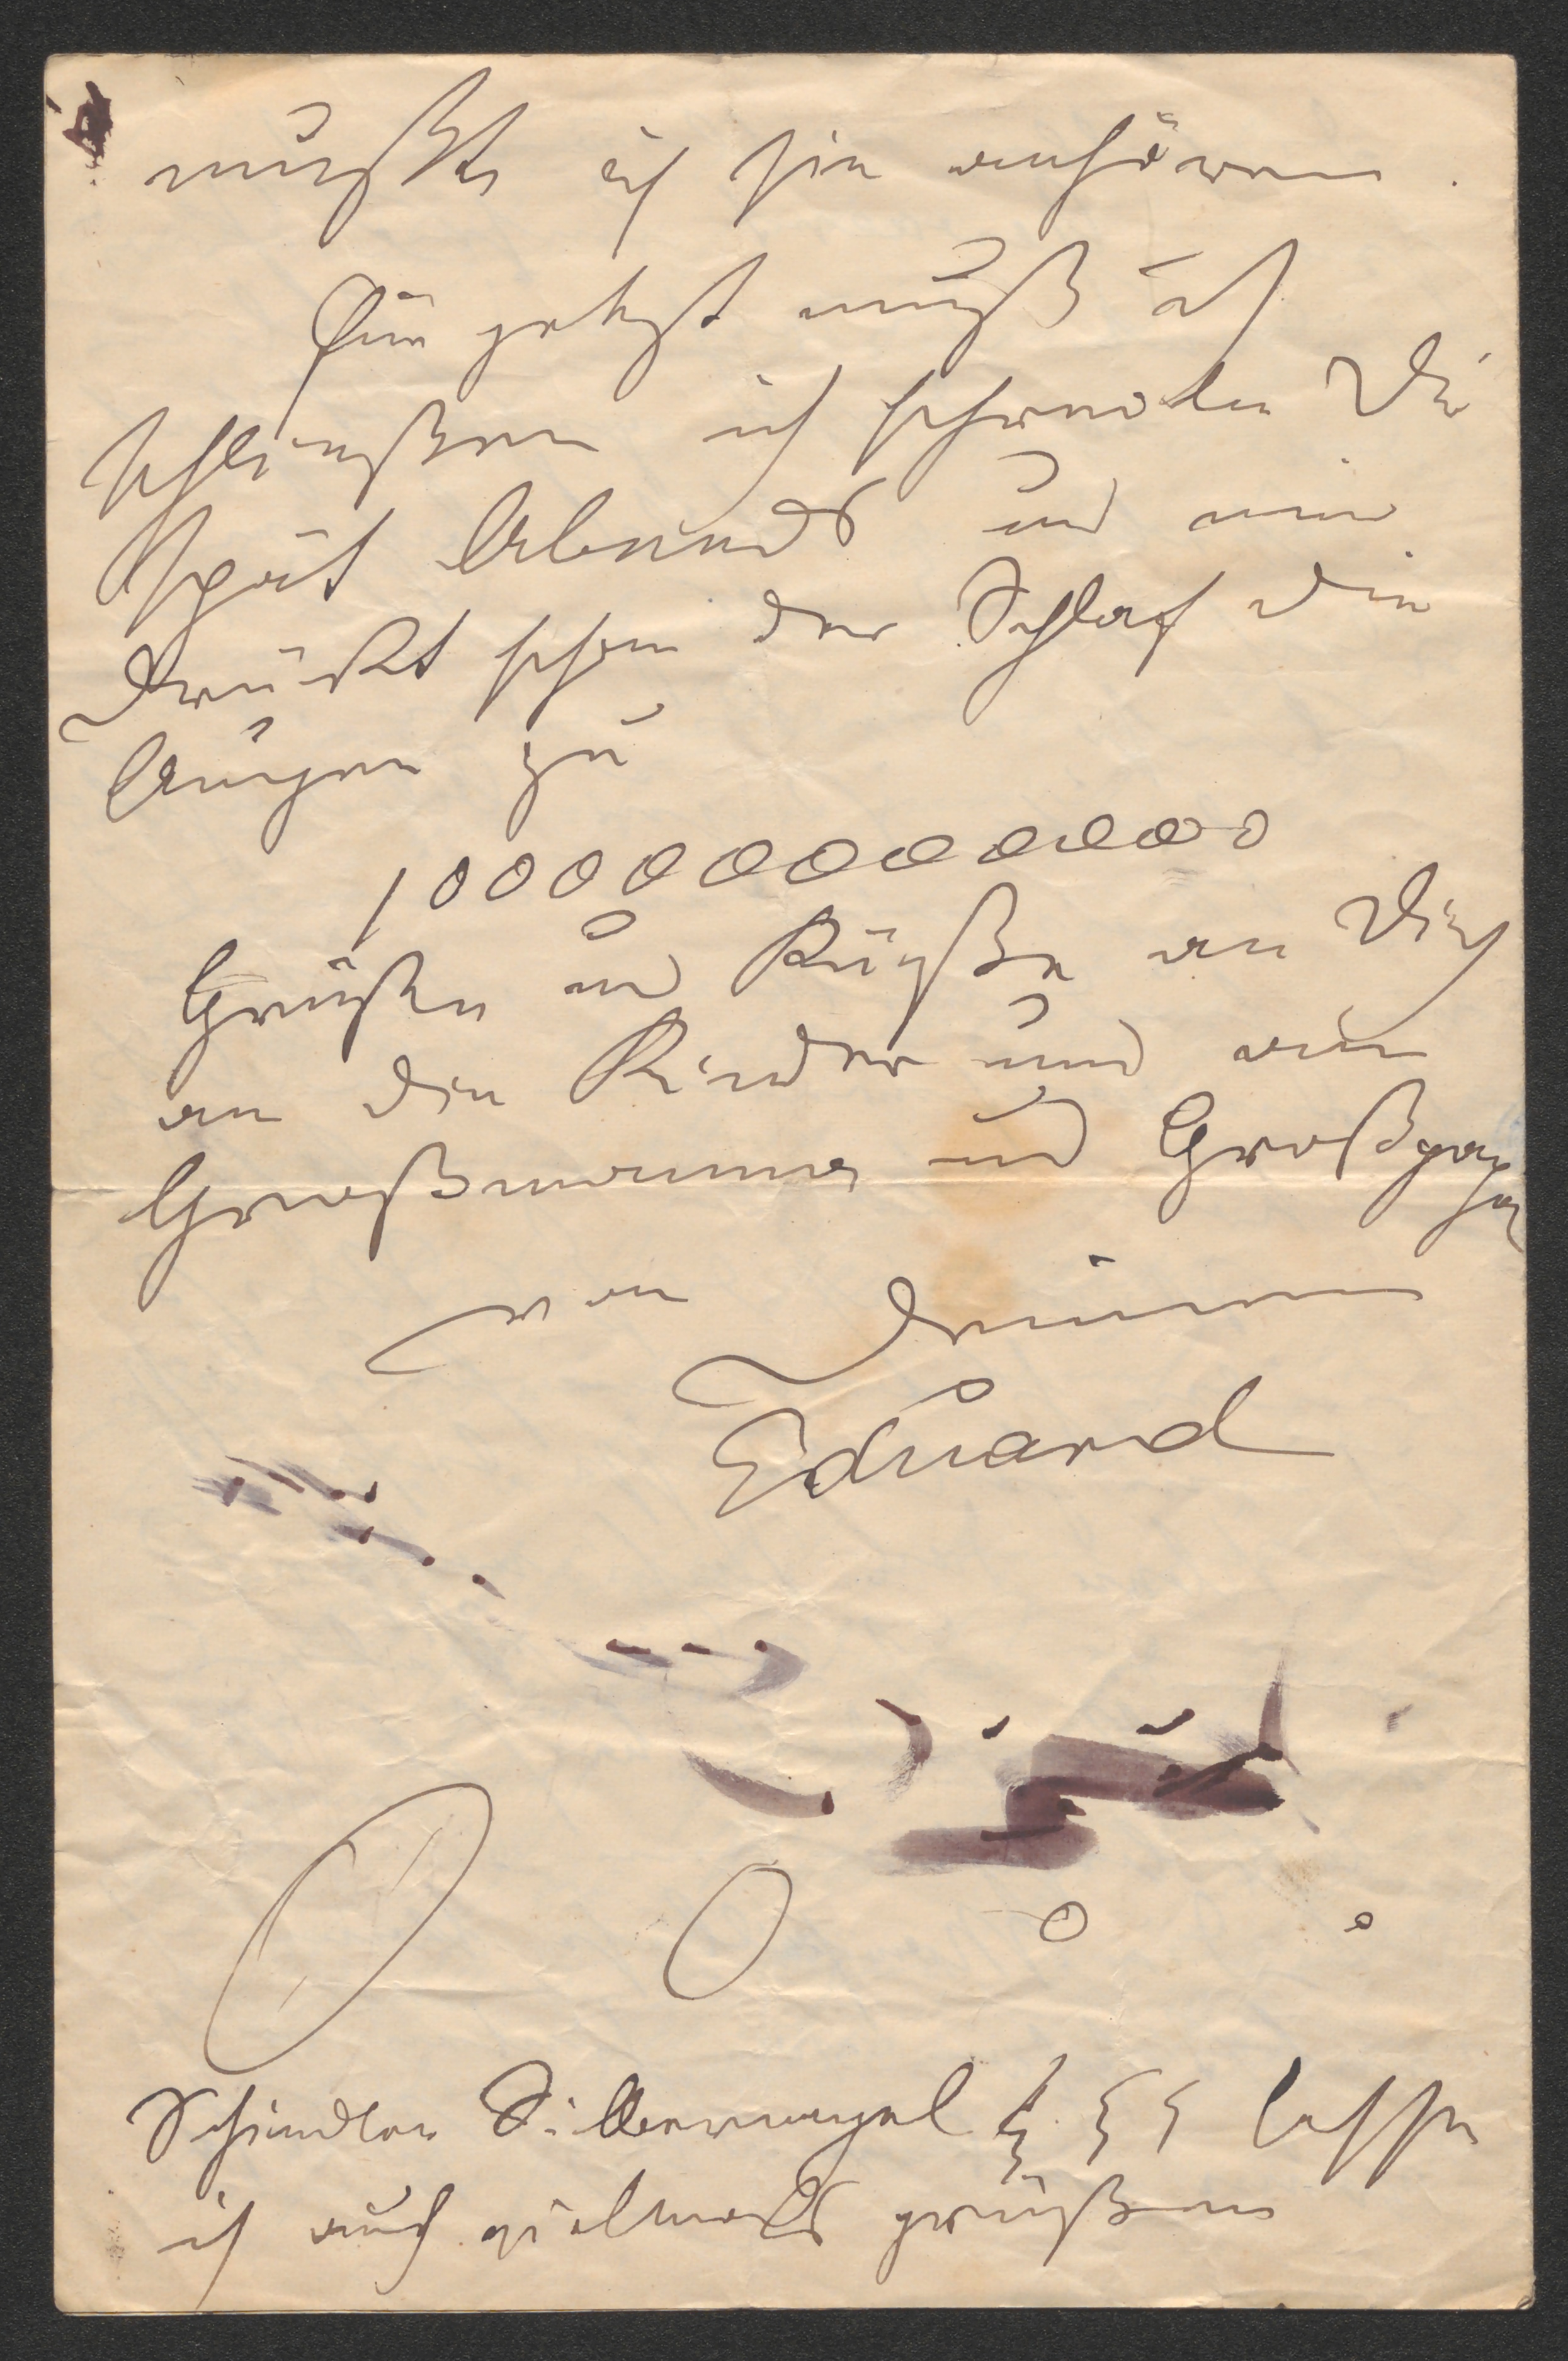 mußte ich sie anhören.
Für jetzt muß ich
schließen ich schreibe Dir
spät Abends und mir
drückt schon der Schlaf die
Augen zu
1000000000000
Grüße und Küße an Dich
an die Kinder und an
Großmama und Großpapa
von Deinem
Eduard
Schindler Silbernagel lasse
ich auch vielmals grüßen